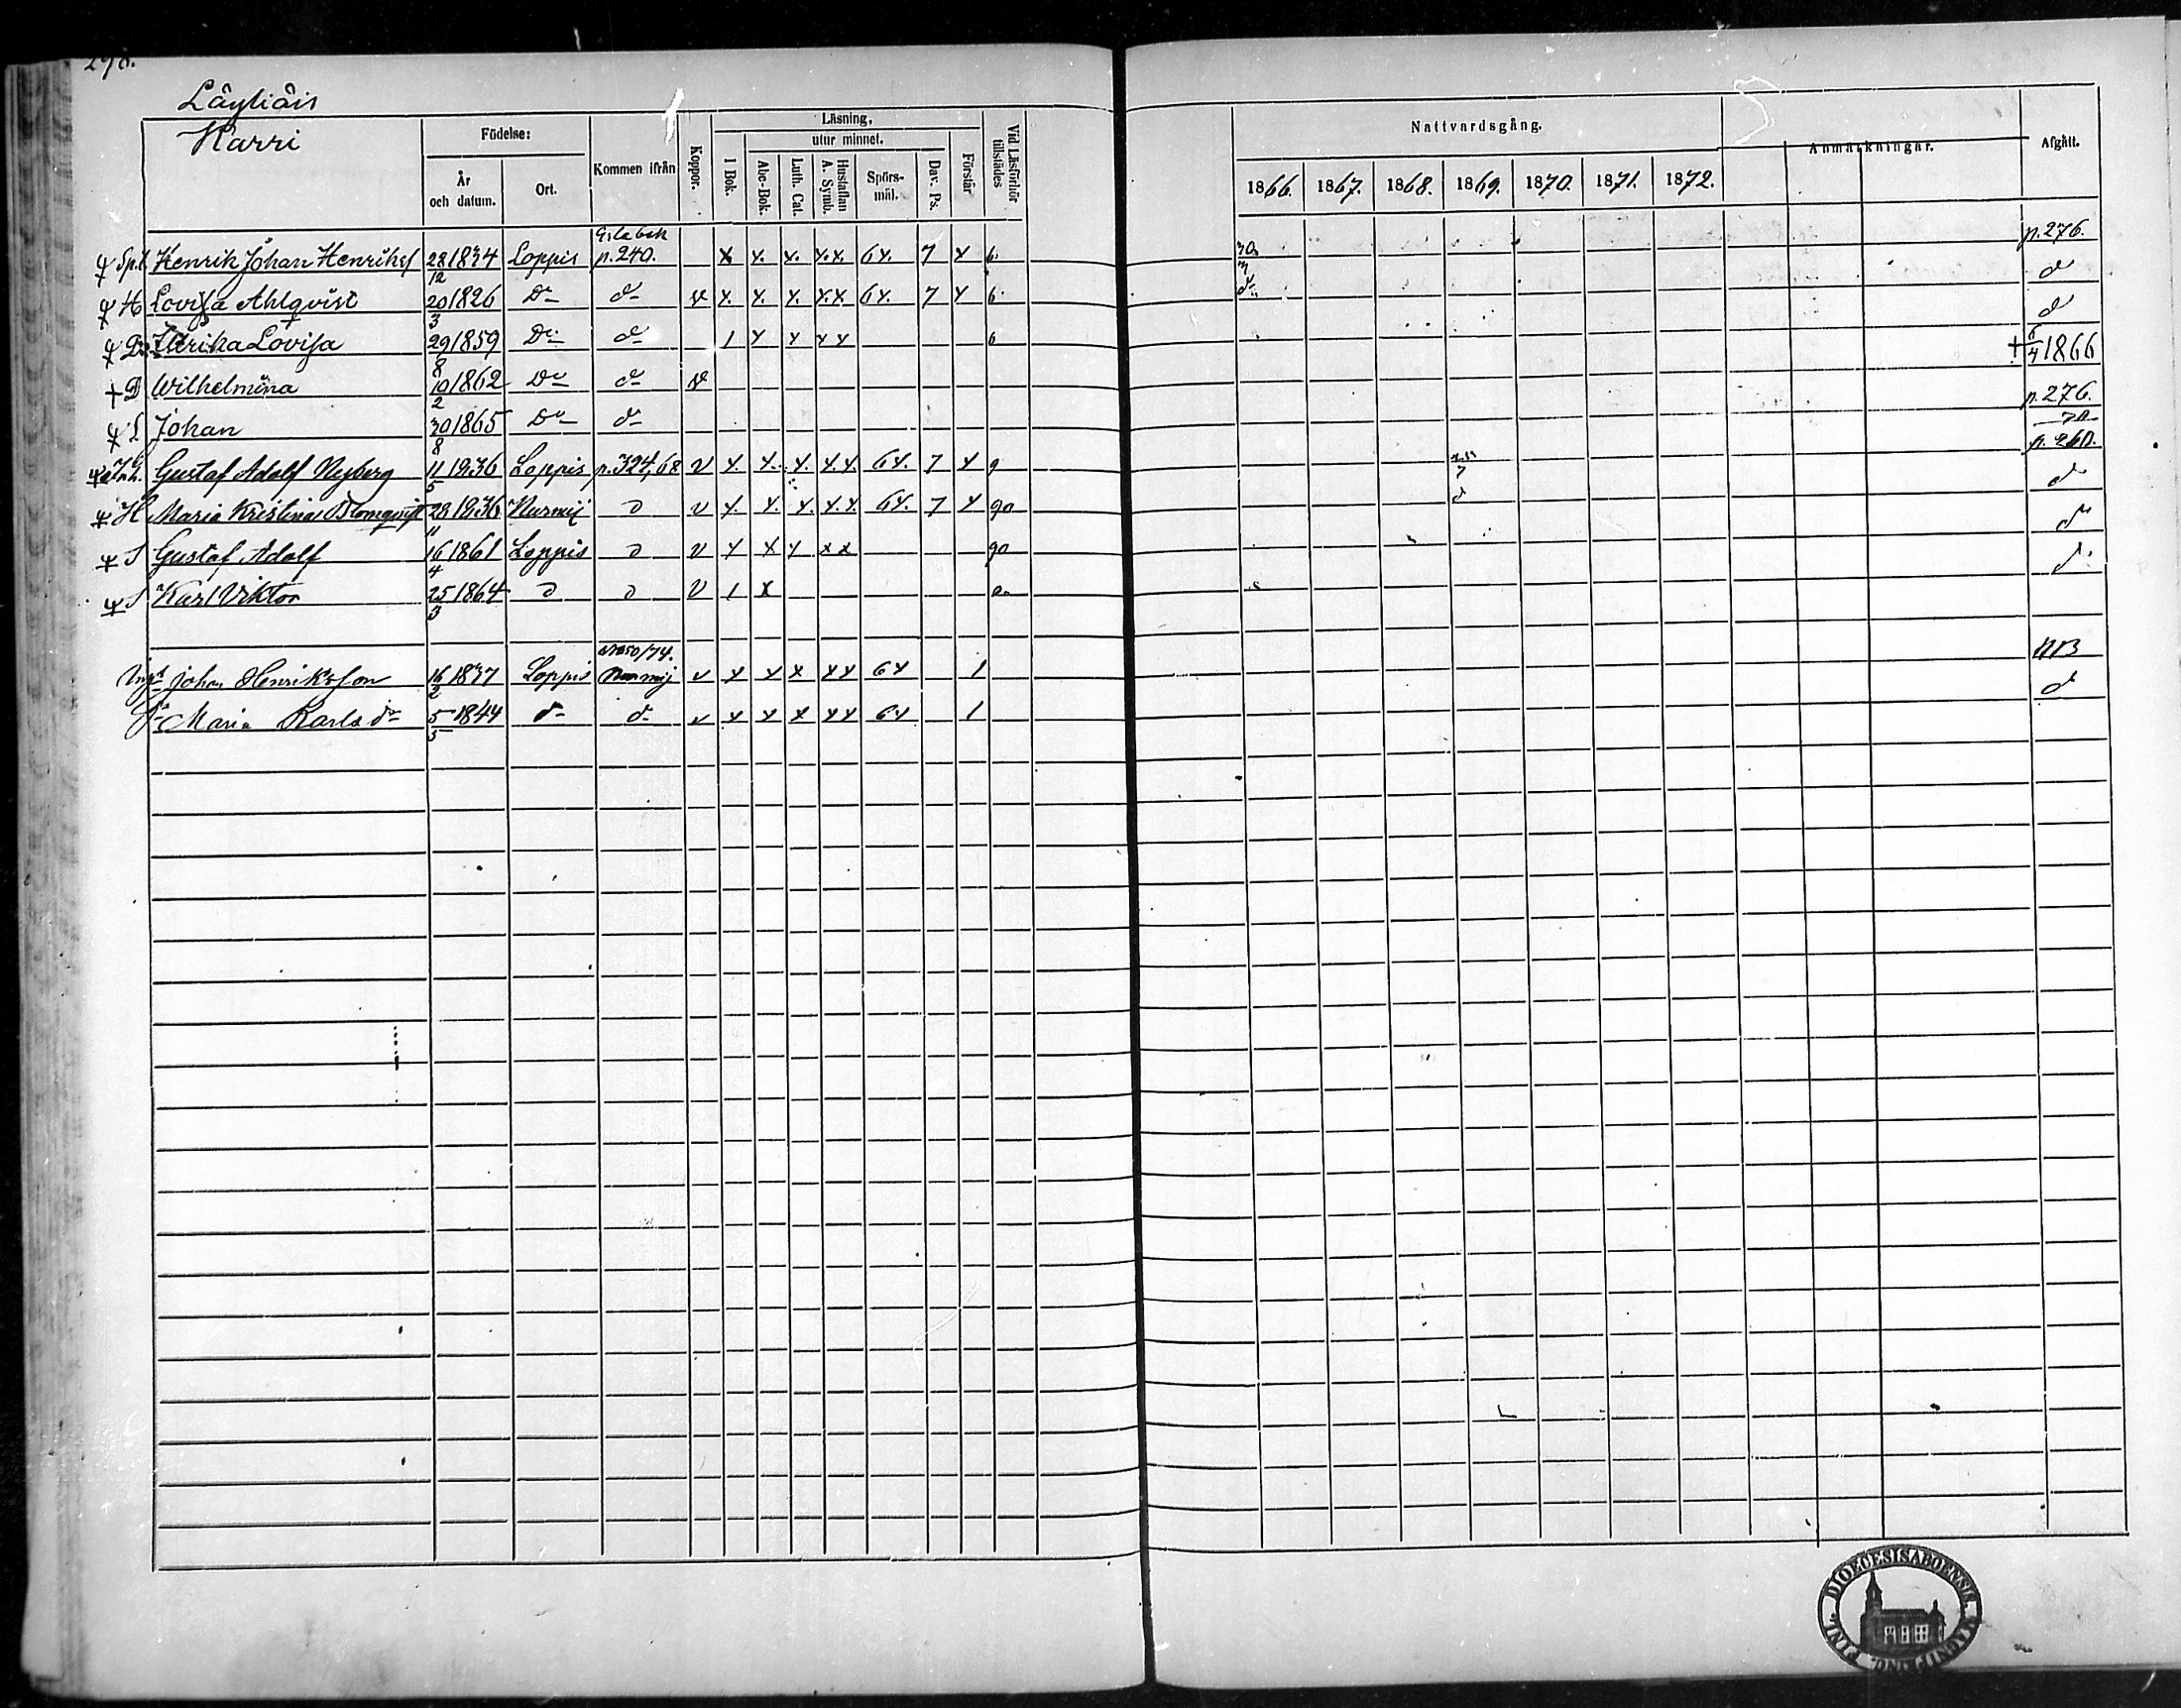 298.
Läyliäis
Karri
Födelse: Kommen ifrån Koppor. Läsning, Vid Läsförhör tillstädes Nattvardsgång. Anmärkningar. Afgått.
År och datum. Ort. I Bok. utur minnet. Förstår
Abc-Bok. Luth. Cat. Hustaflan A. Symb. Spörsmål. Dav. Ps. 1866. 1867. 1868. 1869. 1870. 1871. 1872.
G:la bok
Henrik Johan Henrikss 28/12 1834 Loppis p.240. x x. x. x.x. 6x. 7 x 6. p.276.
H Lovisa Ahlqvist 20/3 1826 Do do v x. x. x. x.x 6x. 7 x 6. do
D Ulrika Lovisa 29/8 1859 Do do 1 x x x x 6 do
† D Wilhelmina 10/2 1862 Do do v † 6/4 1866
S Johan 30/8 1865 Do do p.276.
Inh. Gustaf Adolf Nyberg 11/5 1836 Loppis p.324,68 v x. x. x. x.x. 6x. 7 x 9 p. 260.
H Maria Kristina Blomqvist 28/11 1836 Nurmij d v x. x. x. x.x. 6x. 7 x 90 d
S Gustaf Adolf 16/4 1861 Loppis d v x x x x x 90 do
S Karl Viktor 25/3 1864 d d v 1 x d
Johan Henriksson 16/2 1837 Loppis Nurmij v x x x x x 6x 1
Maria Karlsdr 5/5 1844 do do v x x x x x 6x 1 d
DIOECESIS ABOENSIS. MAGNI PRINC. FINL.